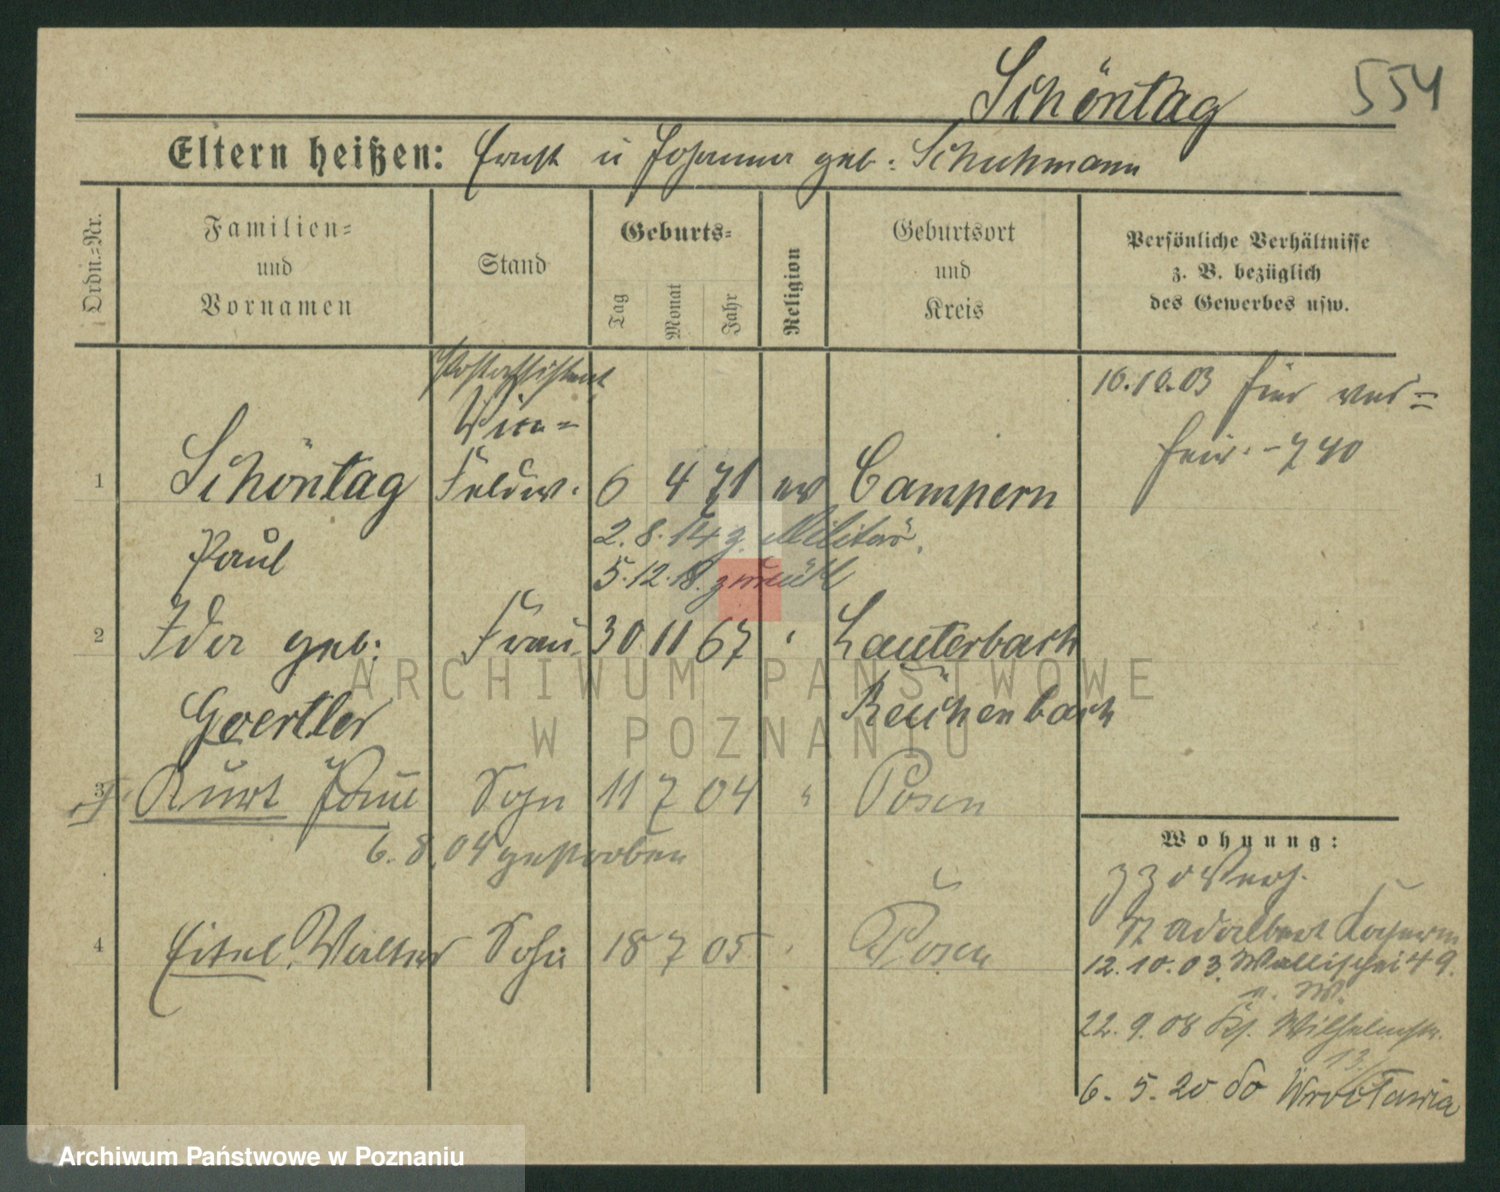 Schöntag 554
Eltern heißen: Ernst u Johanna geb: Schuhmann
Ordn.-Nr.
Familien-
und
Vornamen
Stand
Geburts-
Tag
Monat
Jahr
Religion
Geburtsort
und
Kreis
Persönliche Verhältnisse
z. B. bezüglich
des Gewerbes usw.
Postassistent
Vice-
1 Schöntag Feldw. 6 4 71 ev Campern
Paul
2.8.14 z. Militär.
5.12.18. zurück
2 Ida geb: Frau 30 11 67 " Lauterbach
Goertler Reichenbach
3 Kurt Paul Sohn 11 7 04 " Posen
6.8.04 gestorben
4 Eitel Walter Sohn 18 7 05 " Posen
16.10.03
740
Wohnung:
St Adalbert Kaserne
12.10.03. Wallischei 49.
22.9.08 Wilhelmstr.
13
6.5.20 do Wrocławia
ARCHIWUM PAŃSTWOWE
W POZNANIU
Archiwum Państwowe w Poznaniu